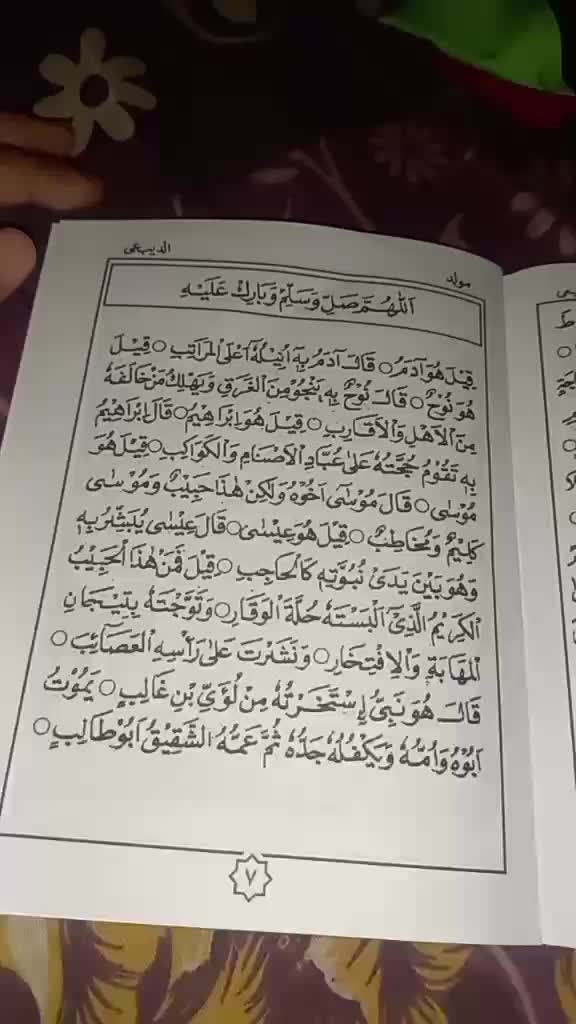 مولد
الديبعي
اَللّٰهُمَّ صَلِّ وَسَلِّمْ وَبَارِكْ عَلَيْهِ
قِيْلَ هُوَ آدَمُ ○ قَالَ آدَمُ بِهِ اُنِيْلُهُ اَعْلَى الْمَرَاتِبِ ○ قِيْلَ
هُوَ نُوْحٌ ○ قَالَ نُوْحٌ بِهِ يَنْجُوْ مِنَ الْغَرَقِ وَيَهْلِكُ مَنْ خَالَفَهُ
مِنَ الْاَهْلِ وَالْاَقَارِبِ ○ قِيْلَ هُوَ اِبْرَاهِيْمُ ○ قَالَ اِبْرَاهِيْمُ
بِهِ تَقُوْمُ حُجَّتُهُ عَلَى عُبَّادِ الْاَصْنَامِ وَالْكَوَاكِبِ ○ قِيْلَ هُوَ
مُوْسٰى ○ قَالَ مُوْسٰى اَخُوْهُ وَلٰكِنْ هٰذَا حَبِيْبٌ وَمُوْسٰى
كَلِيْمٌ وَمُخَاطِبٌ ○ قِيْلَ هُوَ عِيْسٰى ○ قَالَ عِيْسٰى يُبَشِّرُ بِهِ
وَهُوَ بَيْنَ يَدَيْ نُبُوَّتِهِ كَالْحَاجِبِ ○ قِيْلَ فَمَنْ هٰذَا الْحَبِيْبُ
الْكَرِيْمُ الَّذِيْ اَلْبَسْتَهُ حُلَّةَ الْوَقَارِ ○ وَتَوَّجْتَهُ بِتِيْجَانِ
الْمَهَابَةِ وَالْاِفْتِخَارِ ○ وَنَشَرْتَ عَلَى رَأْسِهِ الْعَصَائِبَ ○
قَالَ هُوَ نَبِيٌّ اِسْتَخَرْتُهُ مِنْ لُؤَيِّ بْنِ غَالِبٍ ○ يَمُوْتُ
اَبُوْهُ وَاُمُّهُ وَيَكْفُلُهُ جَدُّهُ ثُمَّ عَمُّهُ الشَّقِيْقُ اَبُوْ طَالِبٍ ○
٧